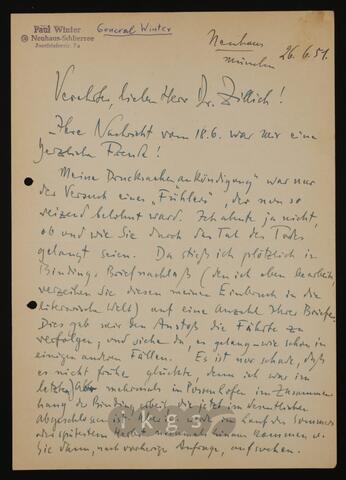 Paul Winter
Neuhaus-Schliersee
Josefstalerstr. 7a
General Winter
Neuhaus
München
26.6.51.
Verehrter, lieber Herr Dr. Zillich!
„Ihre Nachricht vom 18.6. war mir eine
herzliche Freude!
Meine Drucksachenankündigung" war nur
der Versuch eines „Fühlers", der nun so
reizend belohnt ward. Ich ahnte ja nicht,
ob und wie Sie durch das Tal des Todes
gelangt seien. Da stieß ich plötzlich in
Bindings Briefnachlaß (den ich eben bearbeite
verzeihen Sie diesen meinen Einbruch in die
literarische Welt) auf eine Anzahl Ihrer Briefe.
Dies gab mir den Anstoß die Fährte zu
verfolgen, und siehe da, es gelang wie schon in
einigen anderen Fällen. Es ist nur schade, daß
es nicht früher glückte, denn ich war im
letzten mehrmals in Possenhofen im Zusammen-
hang der Binding arbeit, die jetzt im wesentlichen
abgeschlossen ist. im Lauf des Sommers
oder spätestens Herbst nochmals hinaus kommen u.
Sie dann, nach vorheriger Anfrage, aufsuchen.
ikgs